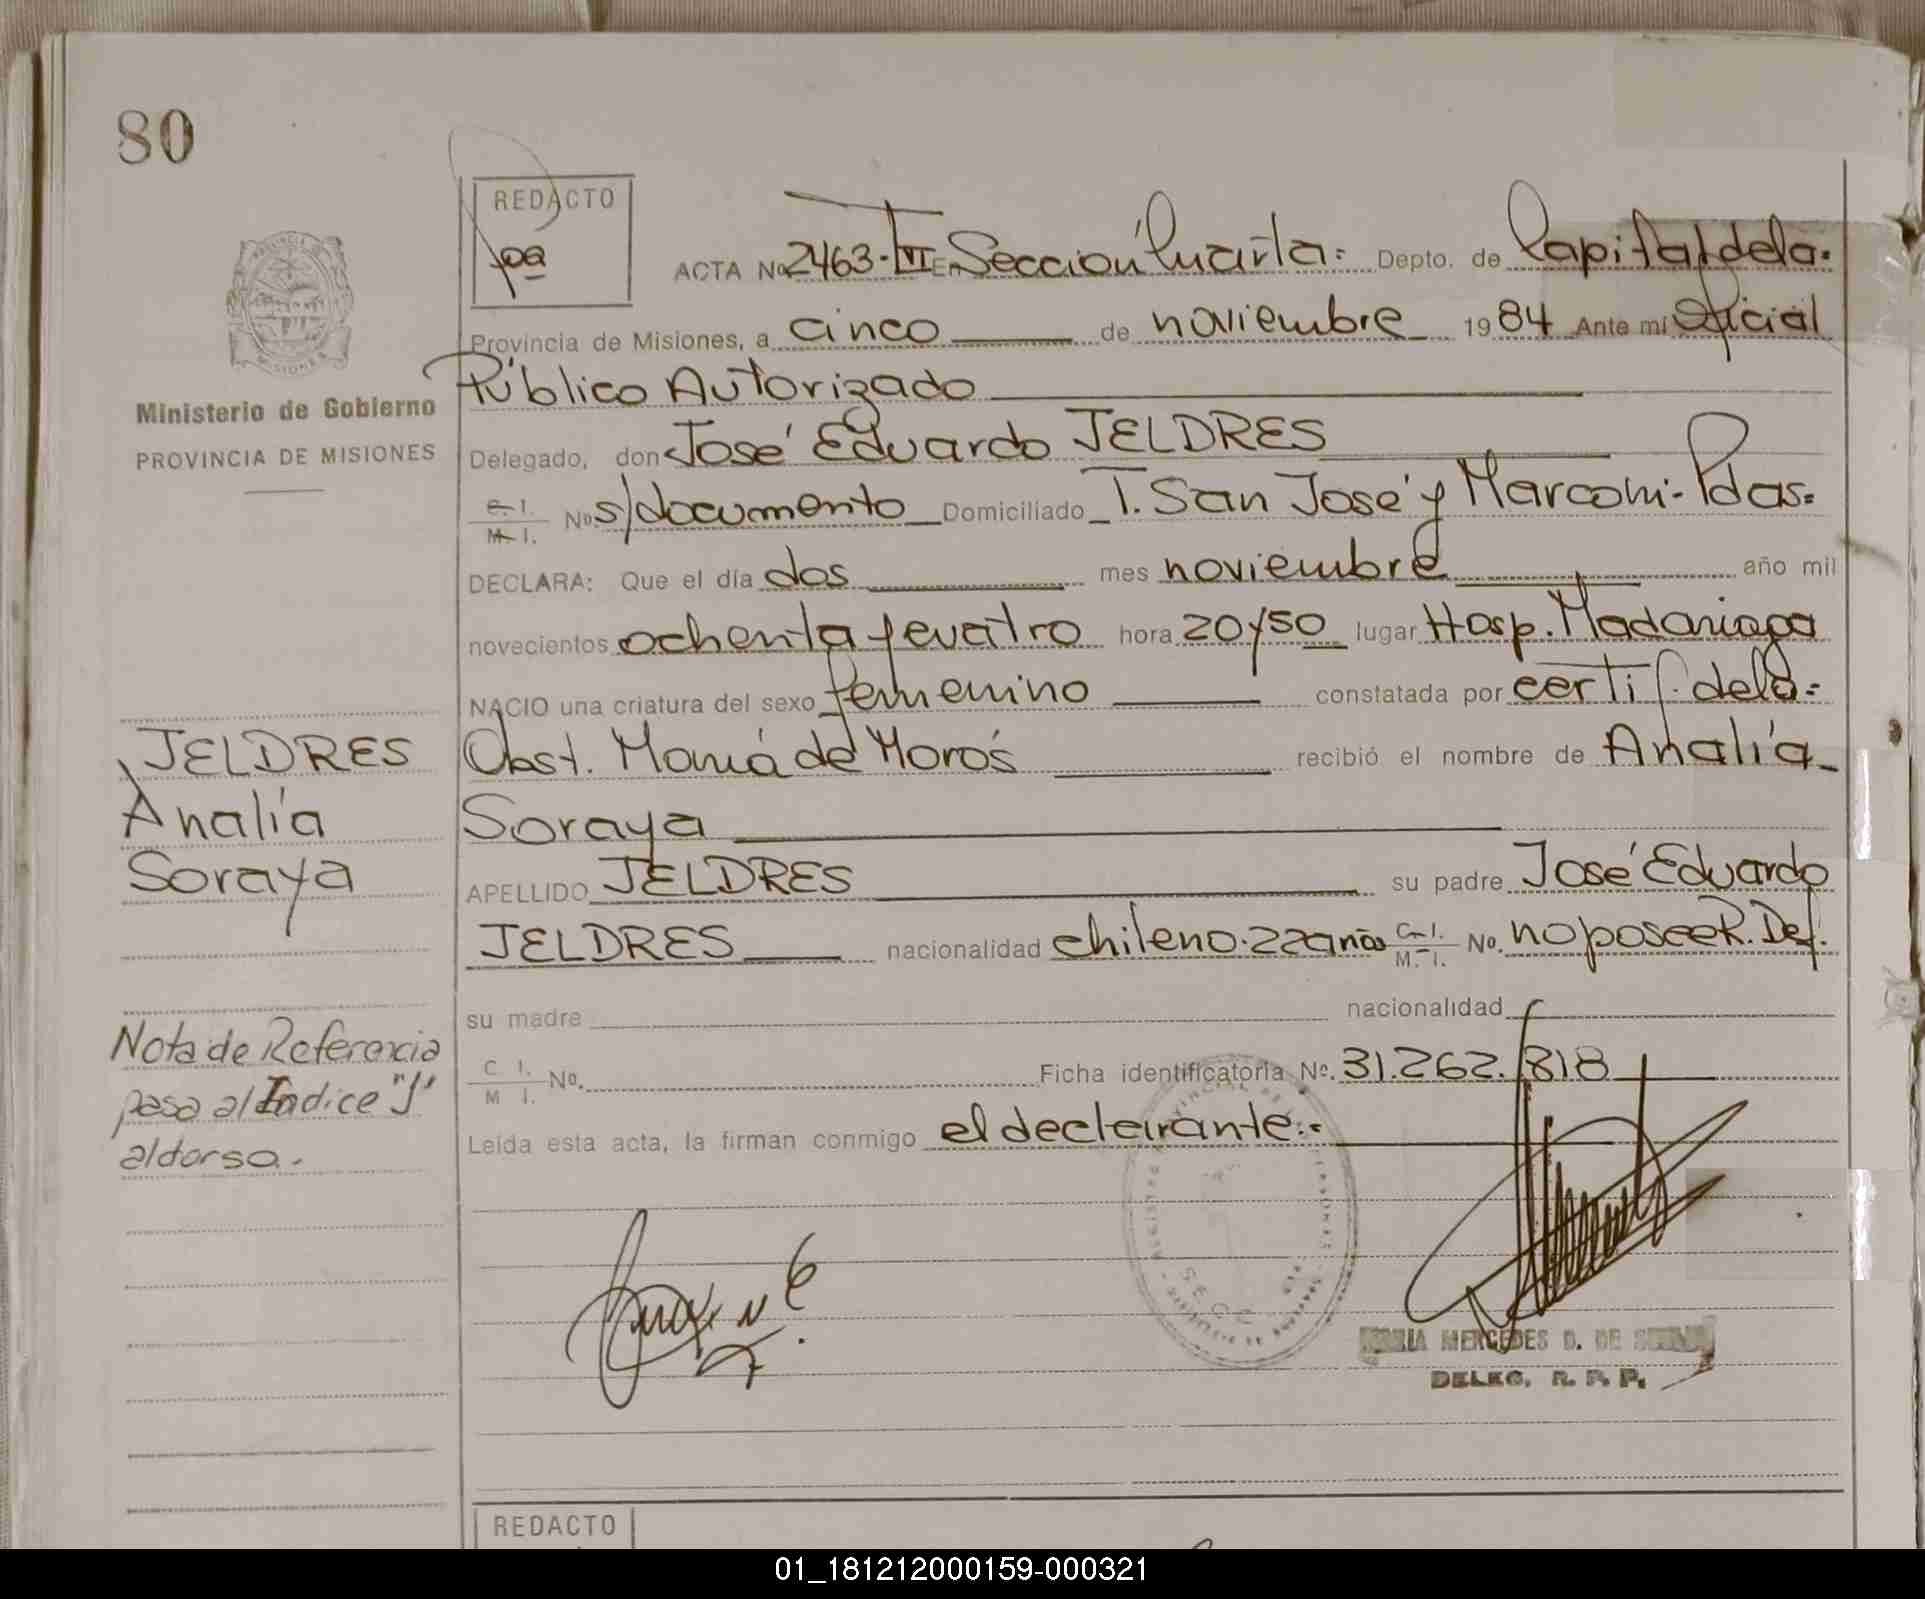 80
REDACTO
ACTA No 2463-TVI En Sección Cuarta= Depto. de Capital dela=
Provincia de Misiones, a cinco de noviembre 19 84 Ante mí Oficial
PROVINCIA DE MISIONES
Público Autorizado
Ministerio de Gobierno
PROVINCIA DE MISIONES
Delegado, don José Eduardo JELDRES
C. I. M. I. No s/documento Domiciliado T. San José y Marconi-Pdas=
DECLARA: Que el día dos mes noviembre año mil
novecientos ochenta y cuatro hora 20y50 lugar Hosp. Madariaga
NACIO una criatura del sexo femenino constatada por certif. dela=
Obst. María de Moros recibió el nombre de Analía
Soraya
JELDRES
Analía
Soraya
APELLIDO JELDRES su padre José Eduardo
JELDRES nacionalidad chileno. 22años C. I. M. I. No. no posee R. Def.
su madre nacionalidad
C I. M I. No. Ficha identificatoria No. 31.262.818
Nota de Referencia
pasa al Indice "J"
al dorso.-
Leída esta acta, la firman conmigo el declarante.-
MARIA MERCEDES D. DE
DELEG. R. P. P.
REDACTO
01_181212000159-000321